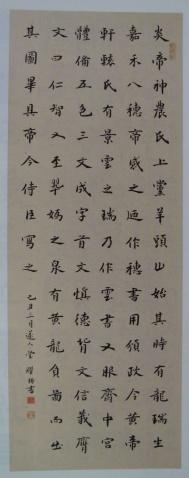 炎帝神農氏上黨羊頭山始其時有龍瑞生
嘉禾八穗帝感之迺作穗書用頒政令黃帝
軒轅氏有景雲之瑞乃作雲書又服齋中宮
體備五色三文成字首文慎德背文信義膺
文曰仁智又至翠媯之泉有黃龍負圖而出
其圖畢具帝令侍臣寫之